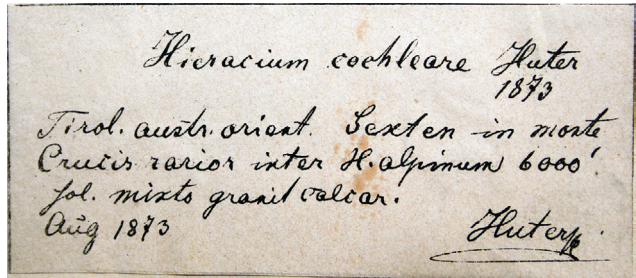 Hieracium cochleare Huter
1873
Tirol. austr. orient. Sexten in monte
Crucis rarior inter H. alpinum 6000'
sol. mixto granit calcar.
Aug 1873
Huter